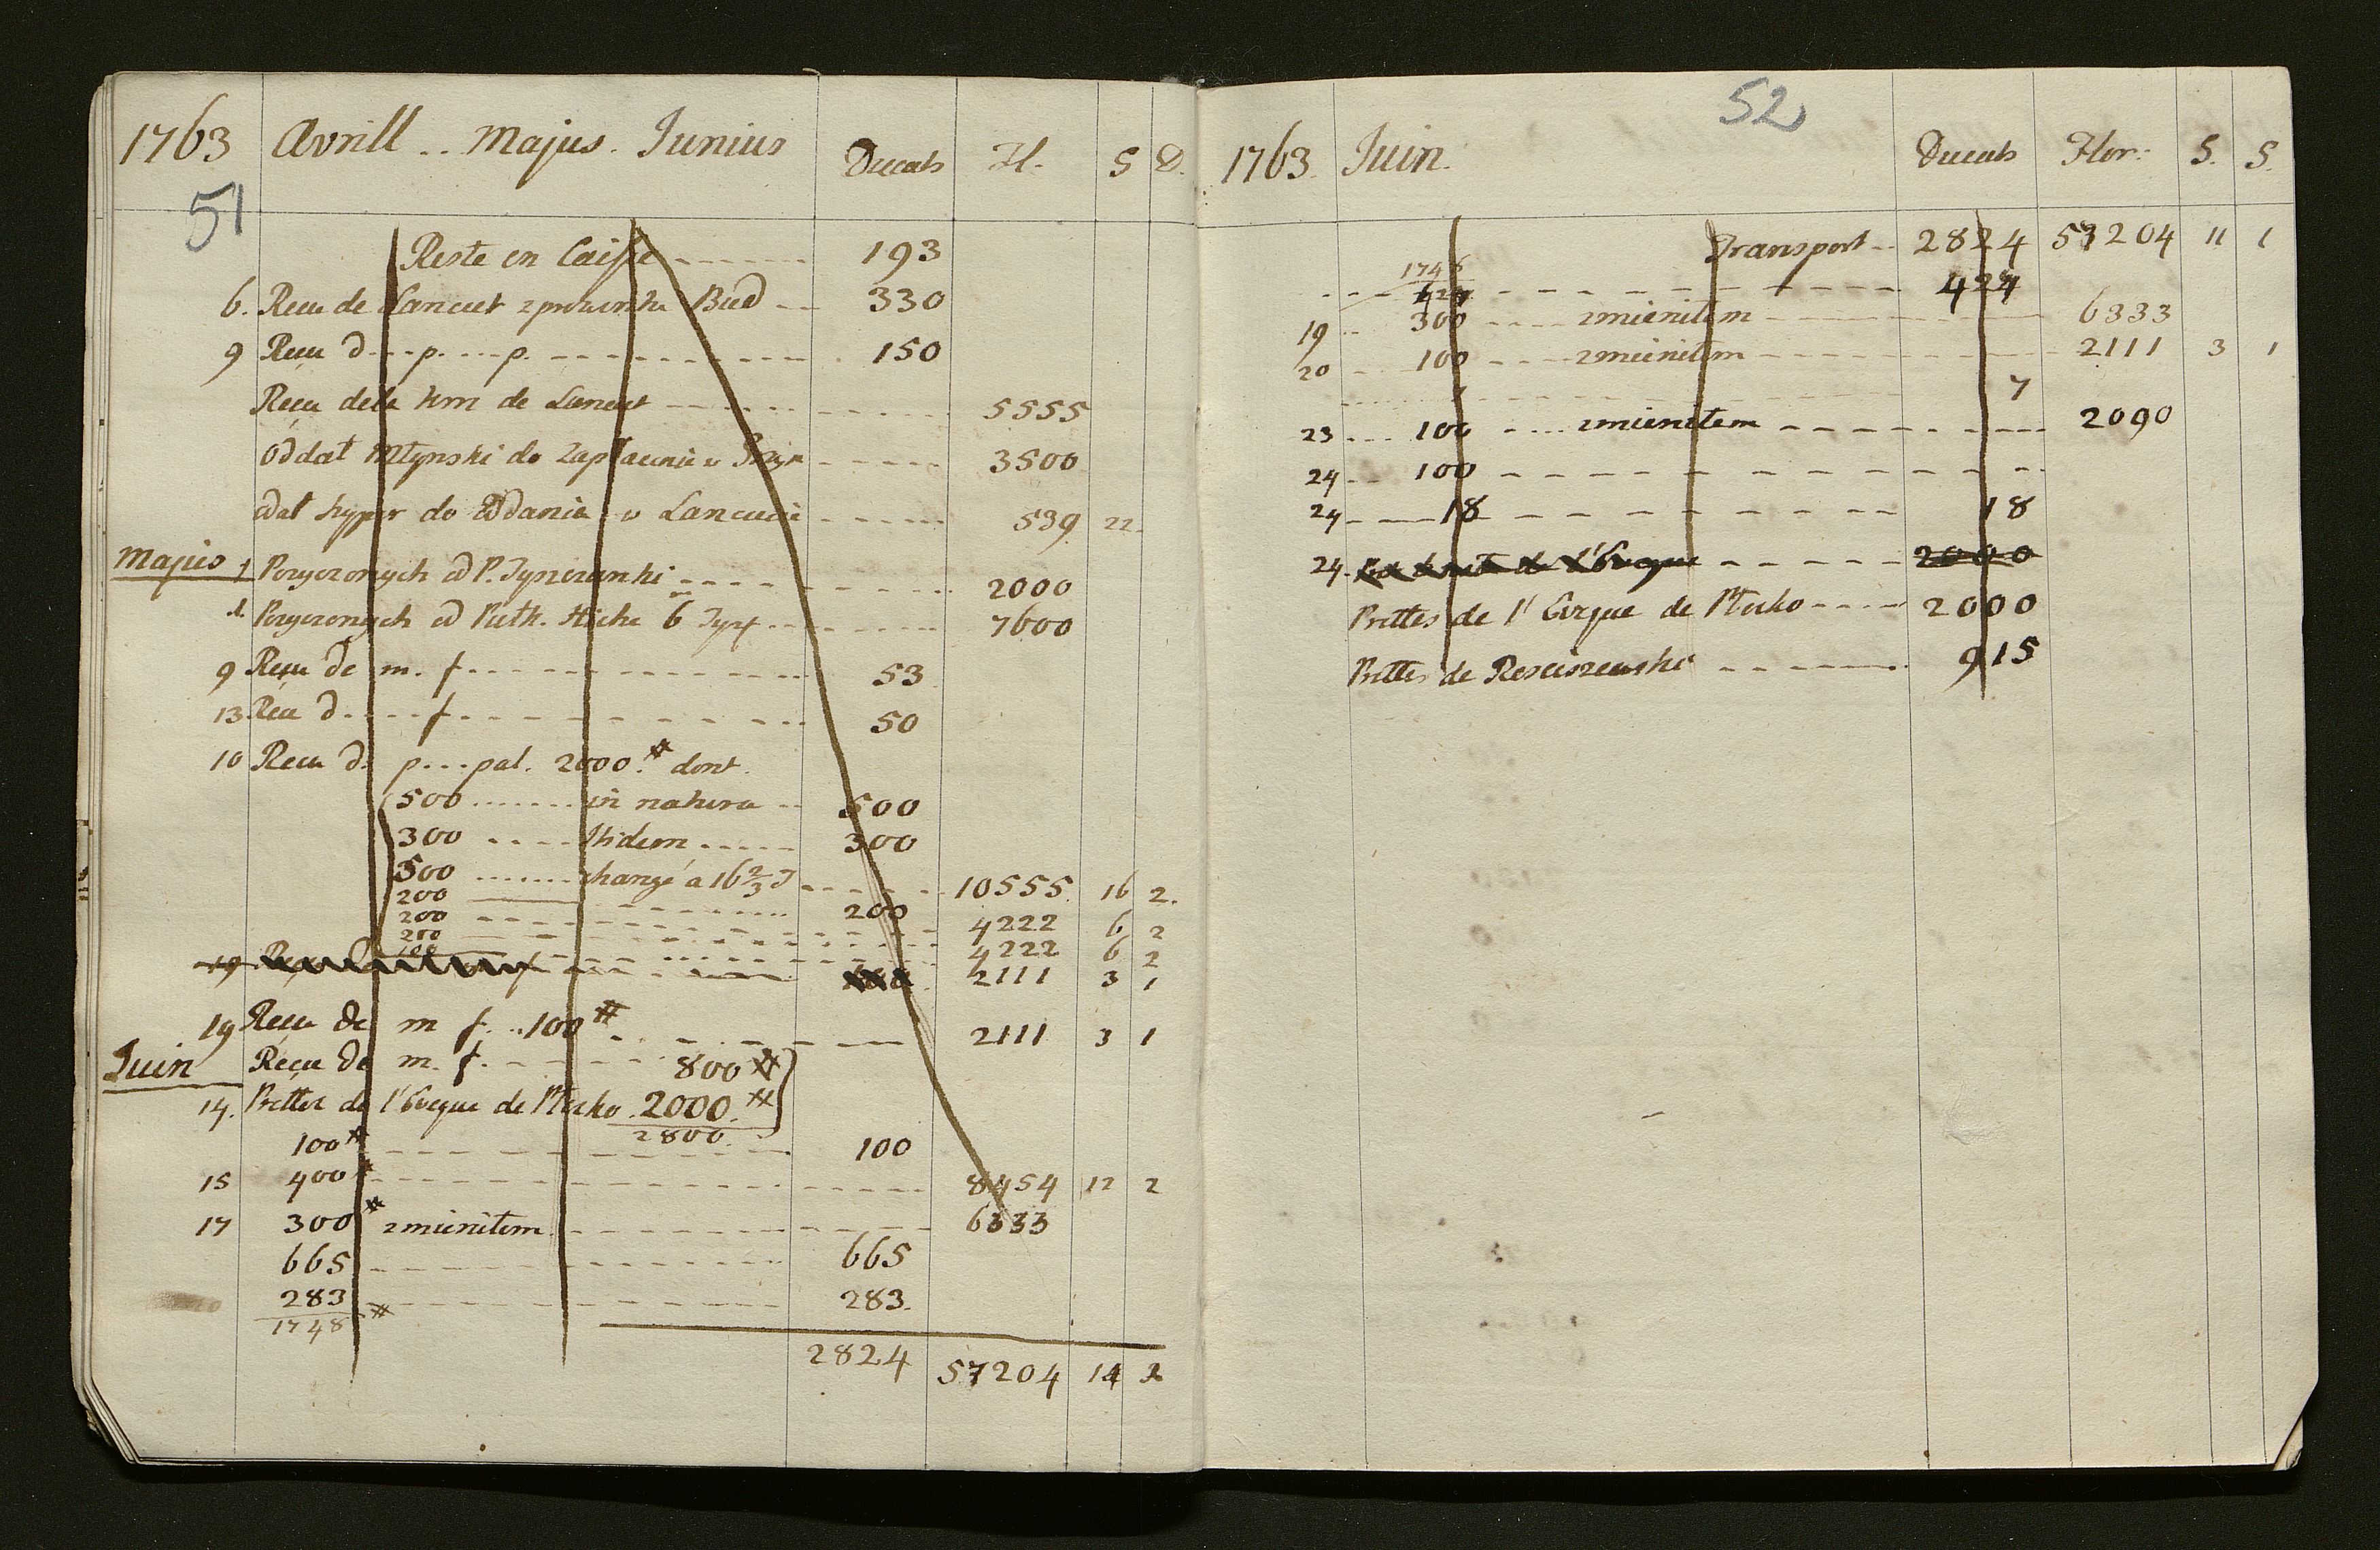 1763 Avrill .. Majus. Junius Ducats Fl. S D.
51
Reste en Caisse 193
6. Recu de Lancut z prowentu Bud 330
9 Recu d...p....p. 150
Reçu dela km de Lancut 5555
oddał Młynski do Zapłacenia v 3500
dał do Oddania v Lancucie 539 22
Majus 1 Pozyczonych od P. 2000
Pozyczonych od 6 Tynf 7600
9 Reçu de m. f. 53
13 Recu d.....f. 50
10 Recu d. p...pal. 2000.# dont
500 in natura 500
300 Itidem 300
500 changé a 16 2/3 10555. 16 2.
200 200
200 4222 6 2
200 4222 6 2
100 2111 3 1
19
19 Recu de m f...100# 2111 3 1
Juin Reçu de m. f. 800#
14. Prettés de l'Eveque de Płocko 2000.#
2800.
100# 100
15 400# 8454 12 2
17 300# zmienitem 6333
665 665
283 283.
1748#
2824 57204 14 1
52
1763 Juin. Ducats Flor: S. S.
Transport 2824 57204 11 1
1748
424 424
19 300 zmienitem 6333
20 100 zmienitem 2111 3 1
7 7
23 100 zmienitem 2090
24 100
24 18 18
24. 2000
Prettes de l'Eveque de Płocko 2000
Prettes de Rosciszewski 915